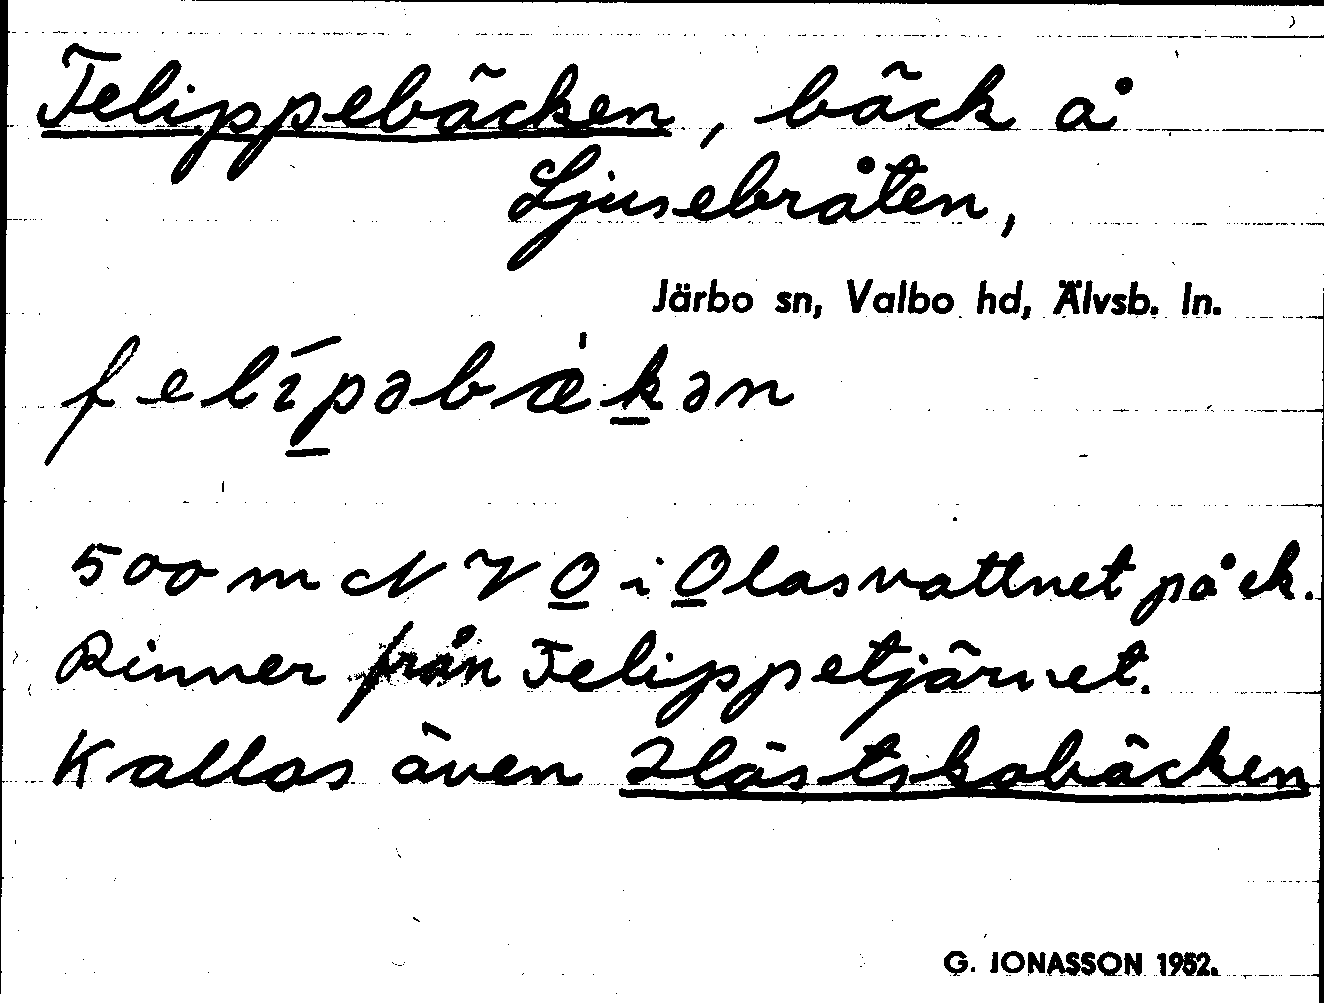 Felippebäcken, bäck å
Ljusebråten,
Järbo sn, Valbo hd, Älvsb. ln.
felípəbæ̀kən
500 m N V O i Olasvattnet på ek.
Rinner från Felippetjärnet.
Kallas även Hästskobäcken
G. JONASSON 1952.